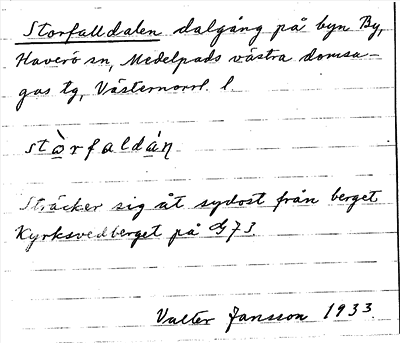 Storfalldalen dalgång på byn By,
Haverö sn, Medelpads västra domsa-
gas tg, Västernorrl. l.
stòrfaldáṇ
Sträcker sig åt sydost från berget
Kyrksvedberget på G73.
Valter Jansson 1933